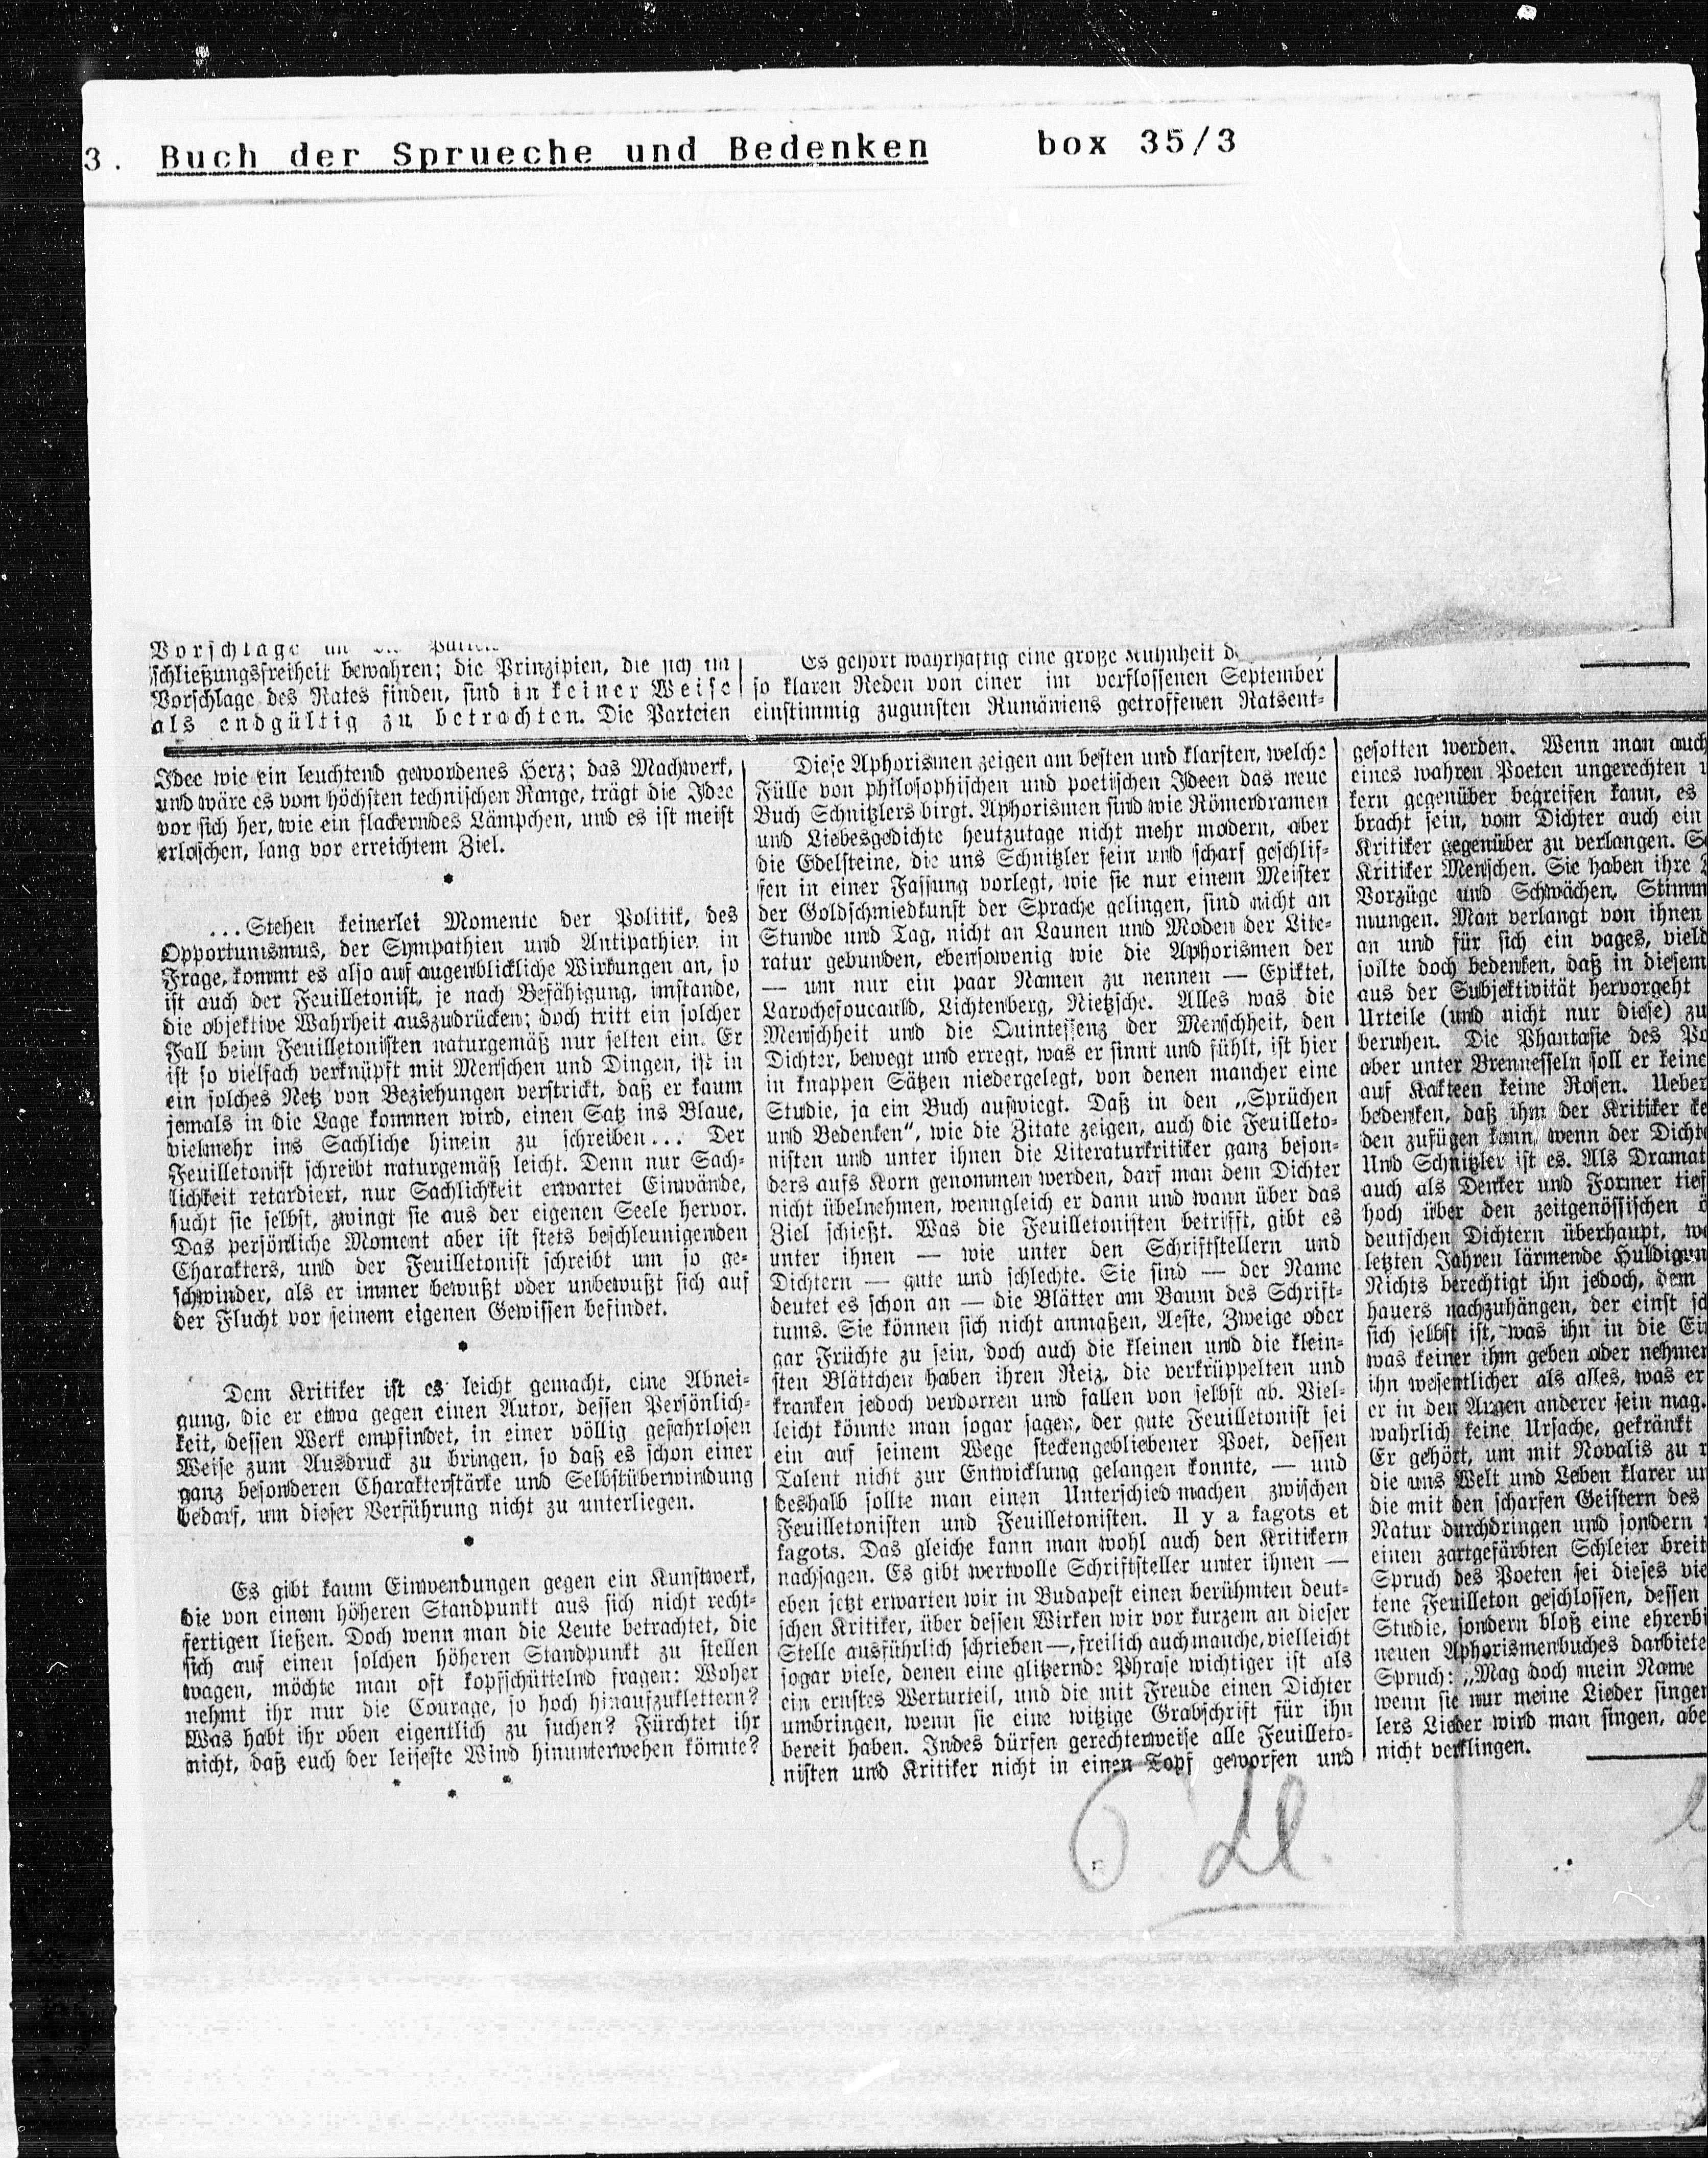 3. Buch der Sprueche und Bedenken box 35/3
Vorschlage
schließungsfreiheit bewahren; die Prinzipien, die sich im
Vorschlage des Rates finden, sind in keiner Weise
als endgültig zu betrachten. Die Parteien
Es gehört wahrhaftig eine große Kühnheit
so klaren Reden von einer im verflossenen September
einstimmig zugunsten Rumäniens getroffenen Ratsent-
Idee wie ein leuchtend gewordenes Herz; das Machwerk,
und wäre es vom höchsten technischen Range, trägt die Idee
vor sich her, wie ein flackerndes Lämpchen, und es ist meist
erloschen, lang vor erreichtem Ziel.
*
...Stehen keinerlei Momente der Politik, des
Opportunismus, der Sympathien und Antipathien in
Frage, kommt es also auf augenblickliche Wirkungen an, so
ist auch der Feuilletonist, je nach Befähigung, imstande,
die objektive Wahrheit auszudrücken; doch tritt ein solcher
Fall beim Feuilletonisten naturgemäß nur selten ein. Er
ist so vielfach verknüpft mit Menschen und Dingen, ist in
ein solches Netz von Beziehungen verstrickt, daß er kaum
jemals in die Lage kommen wird, einen Satz ins Blaue,
vielmehr ins Sachliche hinein zu schreiben... Der
Feuilletonist schreibt naturgemäß leicht. Denn nur Sach-
lichkeit retardiert, nur Sachlichkeit erwartet Einwände,
sucht sie selbst, zwingt sie aus der eigenen Seele hervor.
Das persönliche Moment aber ist stets beschleunigenden
Charakters, und der Feuilletonist schreibt um so ge-
schwinder, als er immer bewußt oder unbewußt sich auf
der Flucht vor seinem eigenen Gewissen befindet.
*
Dem Kritiker ist es leicht gemacht, eine Abnei-
gung, die er etwa gegen einen Autor, dessen Persönlich-
keit, dessen Werk empfindet, in einer völlig gefahrlosen
Weise zum Ausdruck zu bringen, so daß es schon einer
ganz besonderen Charakterstärke und Selbstüberwindung
bedarf, um dieser Verführung nicht zu unterliegen.
*
Es gibt kaum Einwendungen gegen ein Kunstwerk,
die von einem höheren Standpunkt aus sich nicht recht-
fertigen ließen. Doch wenn man die Leute betrachtet, die
sich auf einen solchen höheren Standpunkt zu stellen
wagen, möchte man oft kopfschüttelnd fragen: Woher
nehmt ihr nur die Courage, so hoch hinaufzuklettern?
Was habt ihr oben eigentlich zu suchen? Fürchtet ihr
nicht, daß euch der leiseste Wind hinunterwehen könnte?
* * *
Diese Aphorismen zeigen am besten und klarsten, welche
Fülle von philosophischen und poetischen Ideen das neue
Buch Schnitzlers birgt. Aphorismen sind wie Römerdramen
und Liebesgedichte heutzutage nicht mehr modern, aber
die Edelsteine, die uns Schnitzler fein und scharf geschlif-
fen in einer Fassung vorlegt, wie sie nur einem Meister
der Goldschmiedkunst der Sprache gelingen, sind nicht an
Stunde und Tag, nicht an Launen und Moden der Lite-
ratur gebunden, ebensowenig wie die Aphorismen der
— um nur ein paar Namen zu nennen — Epiktet,
Larochefoucauld, Lichtenberg, Nietzsche. Alles was die
Menschheit und die Quintessenz der Menschheit, den
Dichter, bewegt und erregt, was er sinnt und fühlt, ist hier
in knappen Sätzen niedergelegt, von denen mancher eine
Studie, ja ein Buch aufwiegt. Daß in den „Sprüchen
und Bedenken", wie die Zitate zeigen, auch die Feuilleto-
nisten und unter ihnen die Literaturkritiker ganz beson-
ders aufs Korn genommen werden, darf man dem Dichter
nicht übelnehmen, wenngleich er dann und wann über das
Ziel schießt. Was die Feuilletonisten betrifft, gibt es
unter ihnen — wie unter den Schriftstellern und
Dichtern — gute und schlechte. Sie sind — der Name
deutet es schon an — die Blätter am Baum des Schrift-
tums. Sie können sich nicht anmaßen, Aeste, Zweige oder
gar Früchte zu sein, doch auch die kleinen und die klein-
sten Blättchen haben ihren Reiz, die verkrüppelten und
kranken jedoch verdorren und fallen von selbst ab. Viel-
leicht könnte man sogar sagen, der gute Feuilletonist sei
ein auf seinem Wege steckengebliebener Poet, dessen
Talent nicht zur Entwicklung gelangen konnte, — und
deshalb sollte man einen Unterschied machen zwischen
Feuilletonisten und Feuilletonisten. Il y a fagots et
fagots. Das gleiche kann man wohl auch den Kritikern
nachsagen. Es gibt wertvolle Schriftsteller unter ihnen —
eben jetzt erwarten wir in Budapest einen berühmten deut-
schen Kritiker, über dessen Wirken wir vor kurzem an dieser
Stelle ausführlich schrieben —, freilich auch manche, vielleicht
sogar viele, denen eine glitzernde Phrase wichtiger ist als
ein ernstes Werturteil, und die mit Freude einen Dichter
umbringen, wenn sie eine witzige Grabschrift für ihn
bereit haben. Indes dürfen gerechterweise alle Feuilleto-
nisten und Kritiker nicht in einen Topf geworfen und
gesotten werden. Wenn man auch
eines wahren Poeten ungerechten
kern gegenüber begreifen kann, es
bracht sein, vom Dichter auch ein
Kritiker gegenüber zu verlangen.
Kritiker Menschen. Sie haben ihre
Vorzüge und Schwächen, Stimm
mungen. Man verlangt von ihnen
an und für sich ein vages, viel
sollte doch bedenken, daß in diesem
aus der Subjektivität hervorgeht
Urteile (und nicht nur diese) zu
beruhen. Die Phantasie des
aber unter Brennesseln soll er keine
auf Kakteen keine Rosen. Ueber
bedenken, daß ihm der Kritiker
den zufügen kann, wenn der Dicht
Und Schnitzler ist es. Als Dramat
auch als Denker und Former tief
hoch über den zeitgenössischen
deutschen Dichtern überhaupt,
letzten Jahren lärmende Huldigun
Nichts berechtigt ihn jedoch, dem
hauers nachzuhängen, der einst
sich selbst ist, was ihn in die
was keiner ihm geben oder nehmen
ihn wesentlicher als alles, was er
er in den Augen anderer sein mag.
wahrlich keine Ursache, gekränkt
Er gehört, um mit Novalis zu
die uns Welt und Leben klarer
die mit den scharfen Geistern des
Natur durchdringen und sondern
einen zartgefärbten Schleier breit
Spruch des Poeten sei dieses
tene Feuilleton geschlossen, dessen
Studie, sondern bloß eine ehrerbi
neuen Aphorismenbuches darbiete
Spruch: „Mag doch mein Name
wenn sie nur meine Lieder singen
lers Lieder wird man singen, abe
nicht verklingen.